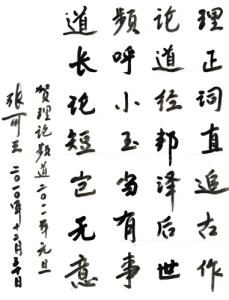 理正词直追古作
论道经邦泽后世
频呼小玉当有事
道长论短岂无意
贺理论频道二〇一一年元旦
张可 二〇一〇年十二月三十日